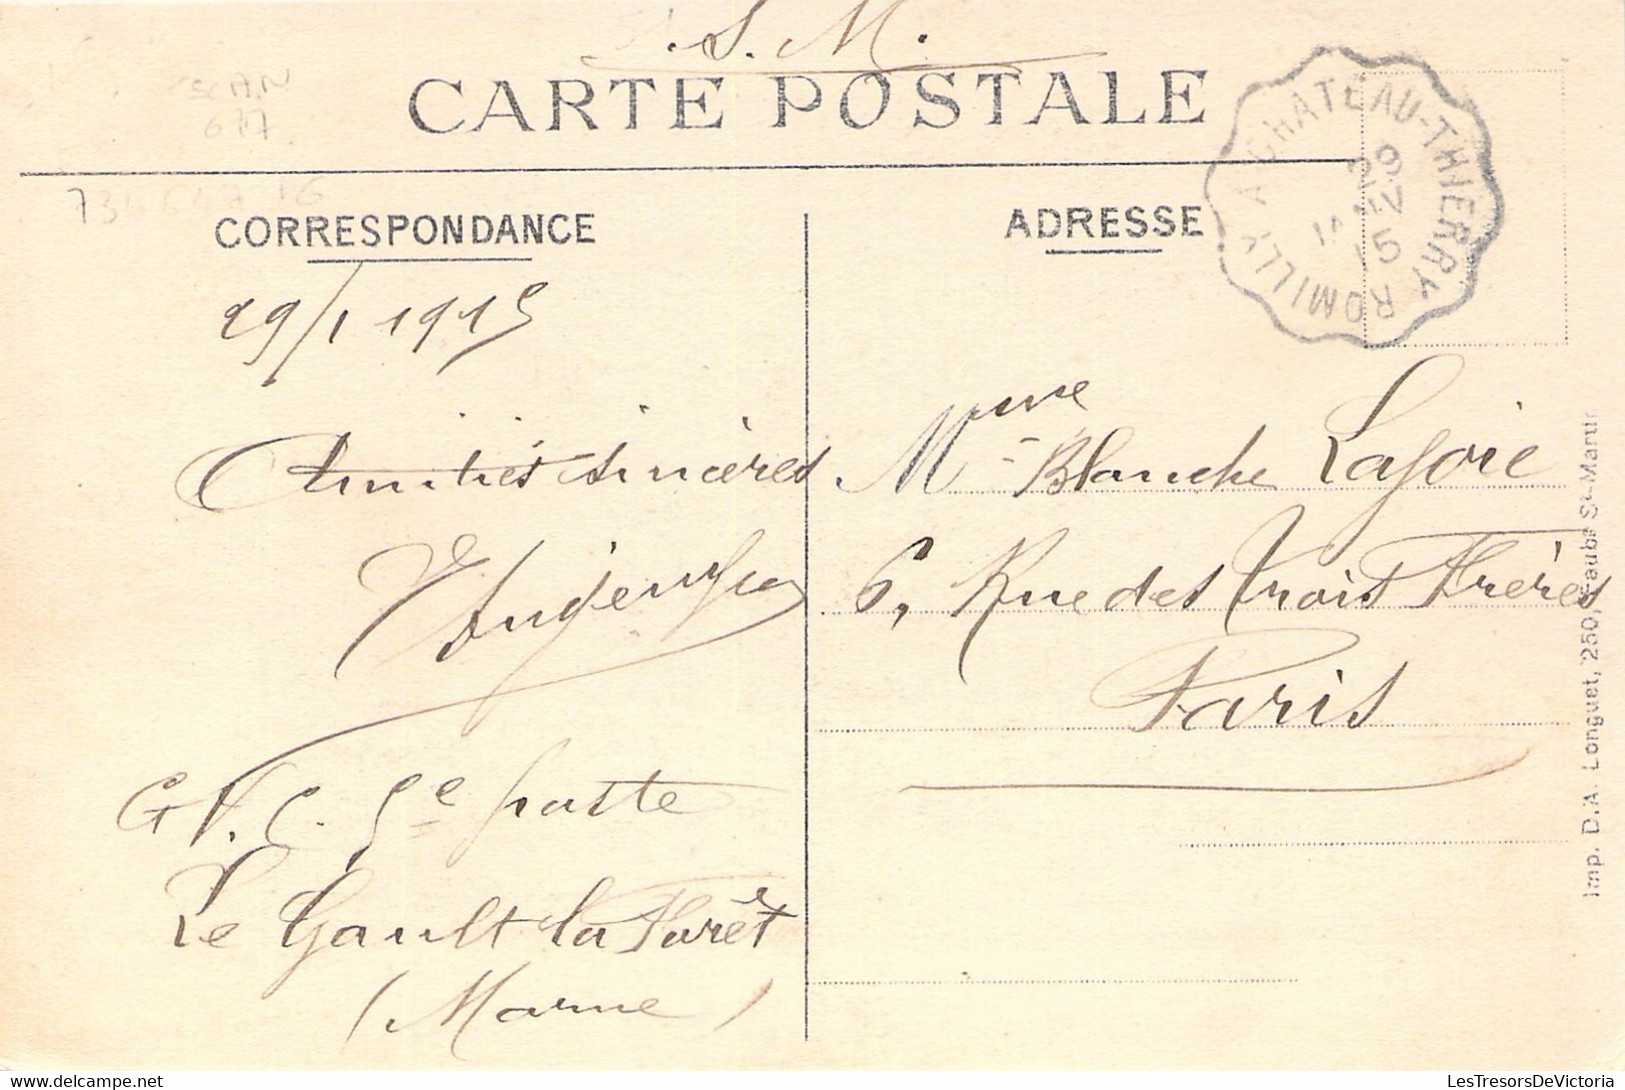 S. M.
CARTE POSTALE
SCAN
677
CORRESPONDANCE
ADRESSE
CHATEAU-THIERRY A ROMILLY
29
JANV
15
29/1 1915
Amitiés sincères.
G. V. C. 5e poste
Le Gault la Forêt
(Marne)
Mme Blanche Lajoie
6, Rue des Trois Frères
Paris
Imp. D.A. Longuet, 250, Faubg St-Martin
LesTresorsDeVictoria
www.delcampe.net